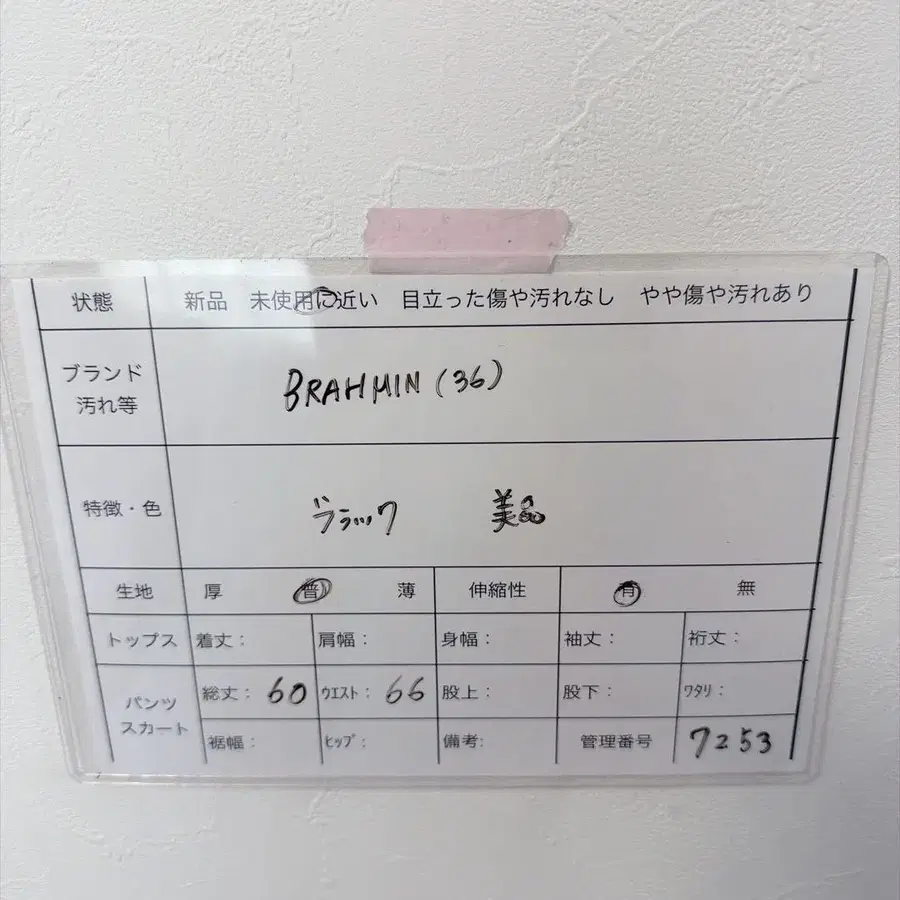 状態 新品 未使用に近い 目立った傷や汚れなし やや傷や汚れあり
ブランド
汚れ等
BRAHMIN (36)
特徴・色 ブラック 美品
生地 厚 普 薄 伸縮性 有 無
トップス 着丈: 肩幅: 身幅: 袖丈: 裄丈:
パンツ
スカート
総丈: 60 ウエスト: 66 股上: 股下: ワタリ:
裾幅: ヒップ: 備考: 管理番号 7253